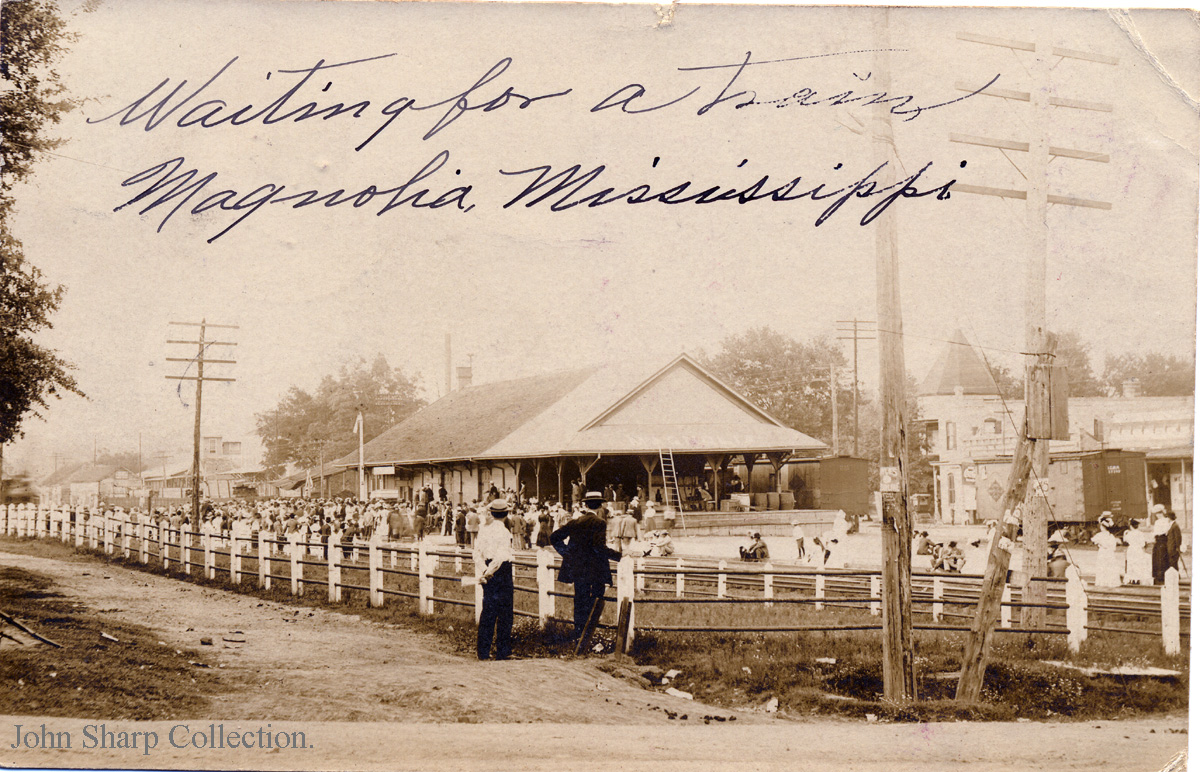 Waiting for a train,
Magnolia, Mississippi.
John Sharp Collection.